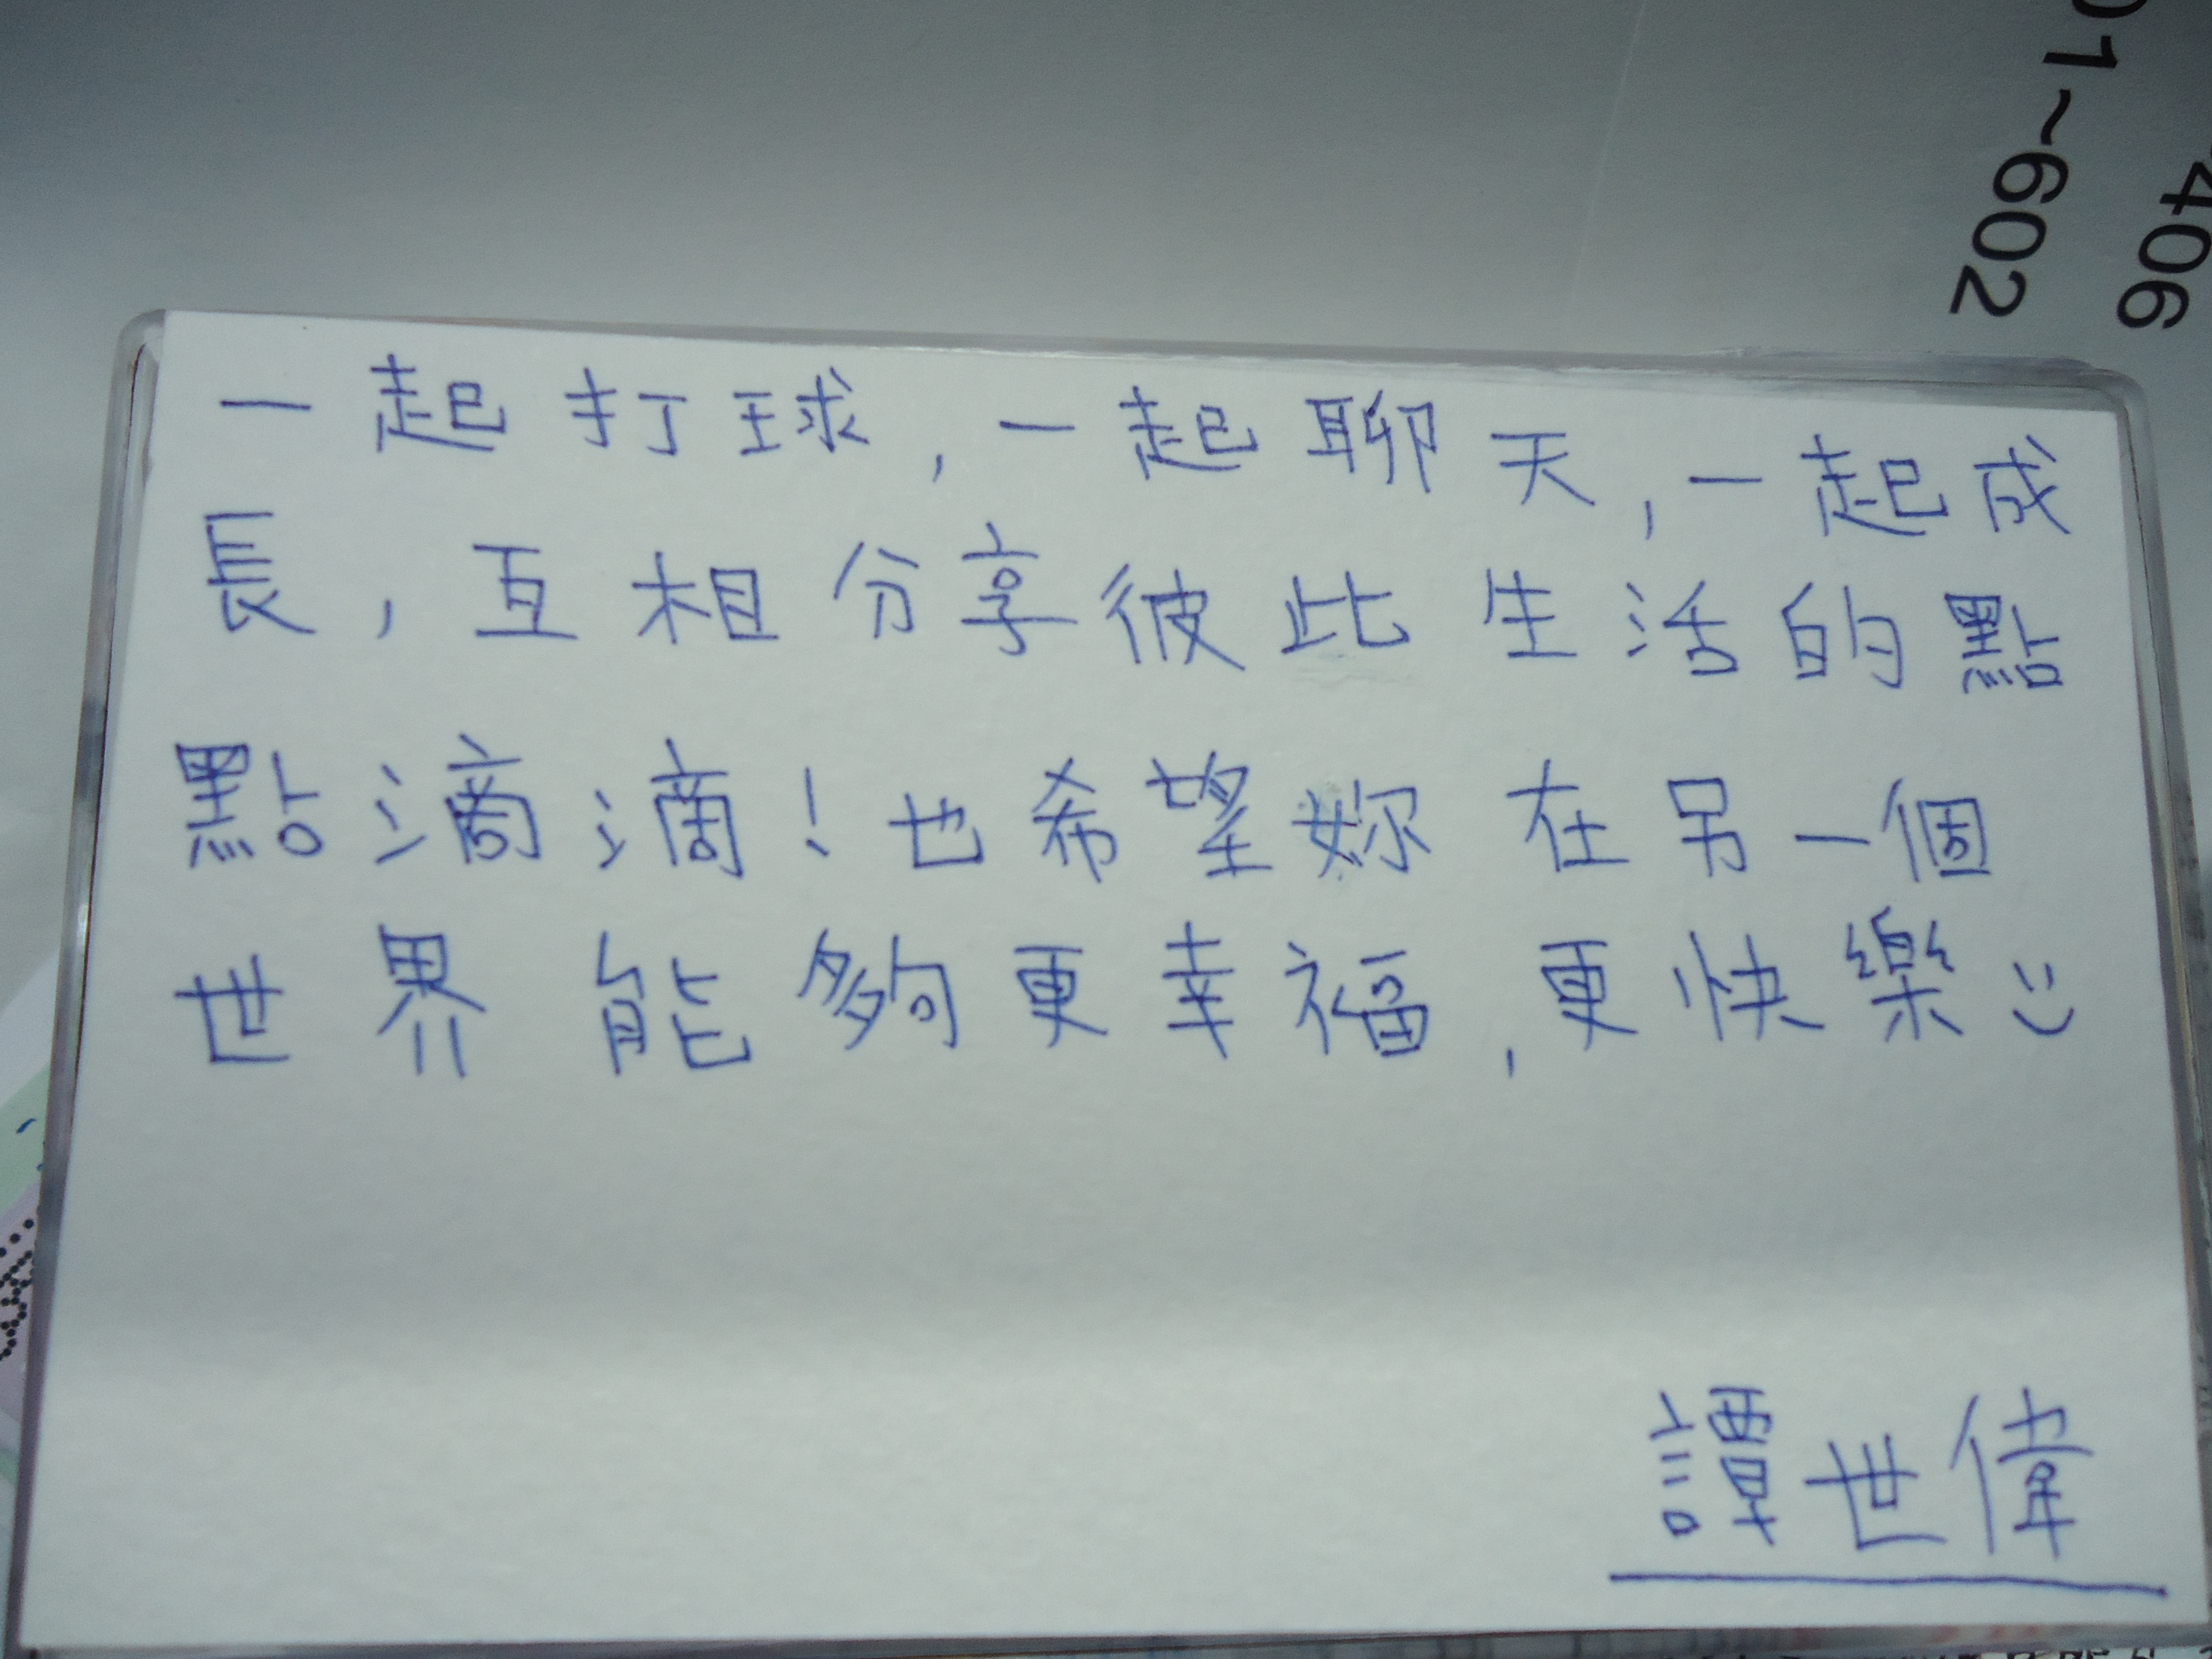 01~602
406
一起打球，一起聊天，一起成
長，互相分享彼此生活的點
點滴滴！也希望妳在另一個
世界能夠更幸福，更快樂 =)
譚世偉